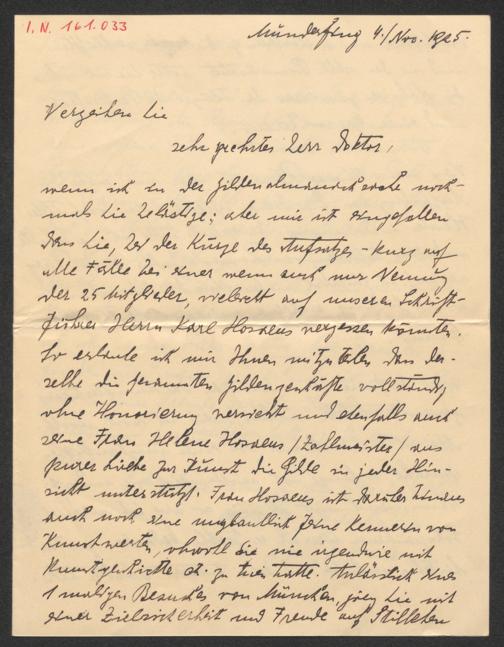 I. N. 161.033
Munderfing 4./Nov. 1925.
Verzeihen Sie
sehr geehrter Herr Doktor,
wenn ich in der Gildenalmanachsache noch-
mals Sie belästige; aber mir ist eingefallen
dass Sie, bei der Kürze des Aufsatzes - kurz auf
alle Fälle bei einer wenn auch nur Nennung
der 25 Mitglieder, vielleicht auf unseren Schrift-
führer Herrn Karl Hosaeus vergessen könnten.
So erlaube ich mir Ihnen mitzuteilen dass der-
selbe die gesamten Gildengeschäfte vollständig
ohne Honorierung versieht und ebenfalls auch
seine Frau Helene Hosaeus /Zahlmeister/ aus
purer Liebe zur Kunst die Gilde in jeder Hin-
sicht unterstützt. Frau Hosaeus ist darüber hinaus
auch noch eine unglaublich feine Kennerin von
Kunstwerten, obwohl sie nie irgendwie mit
Kunstgeschichte zu tun hatte. Anlässlich eines
1 maligen Besuches von München, ging sie mit
einer Zielsicherheit und Freude auf Stilleben